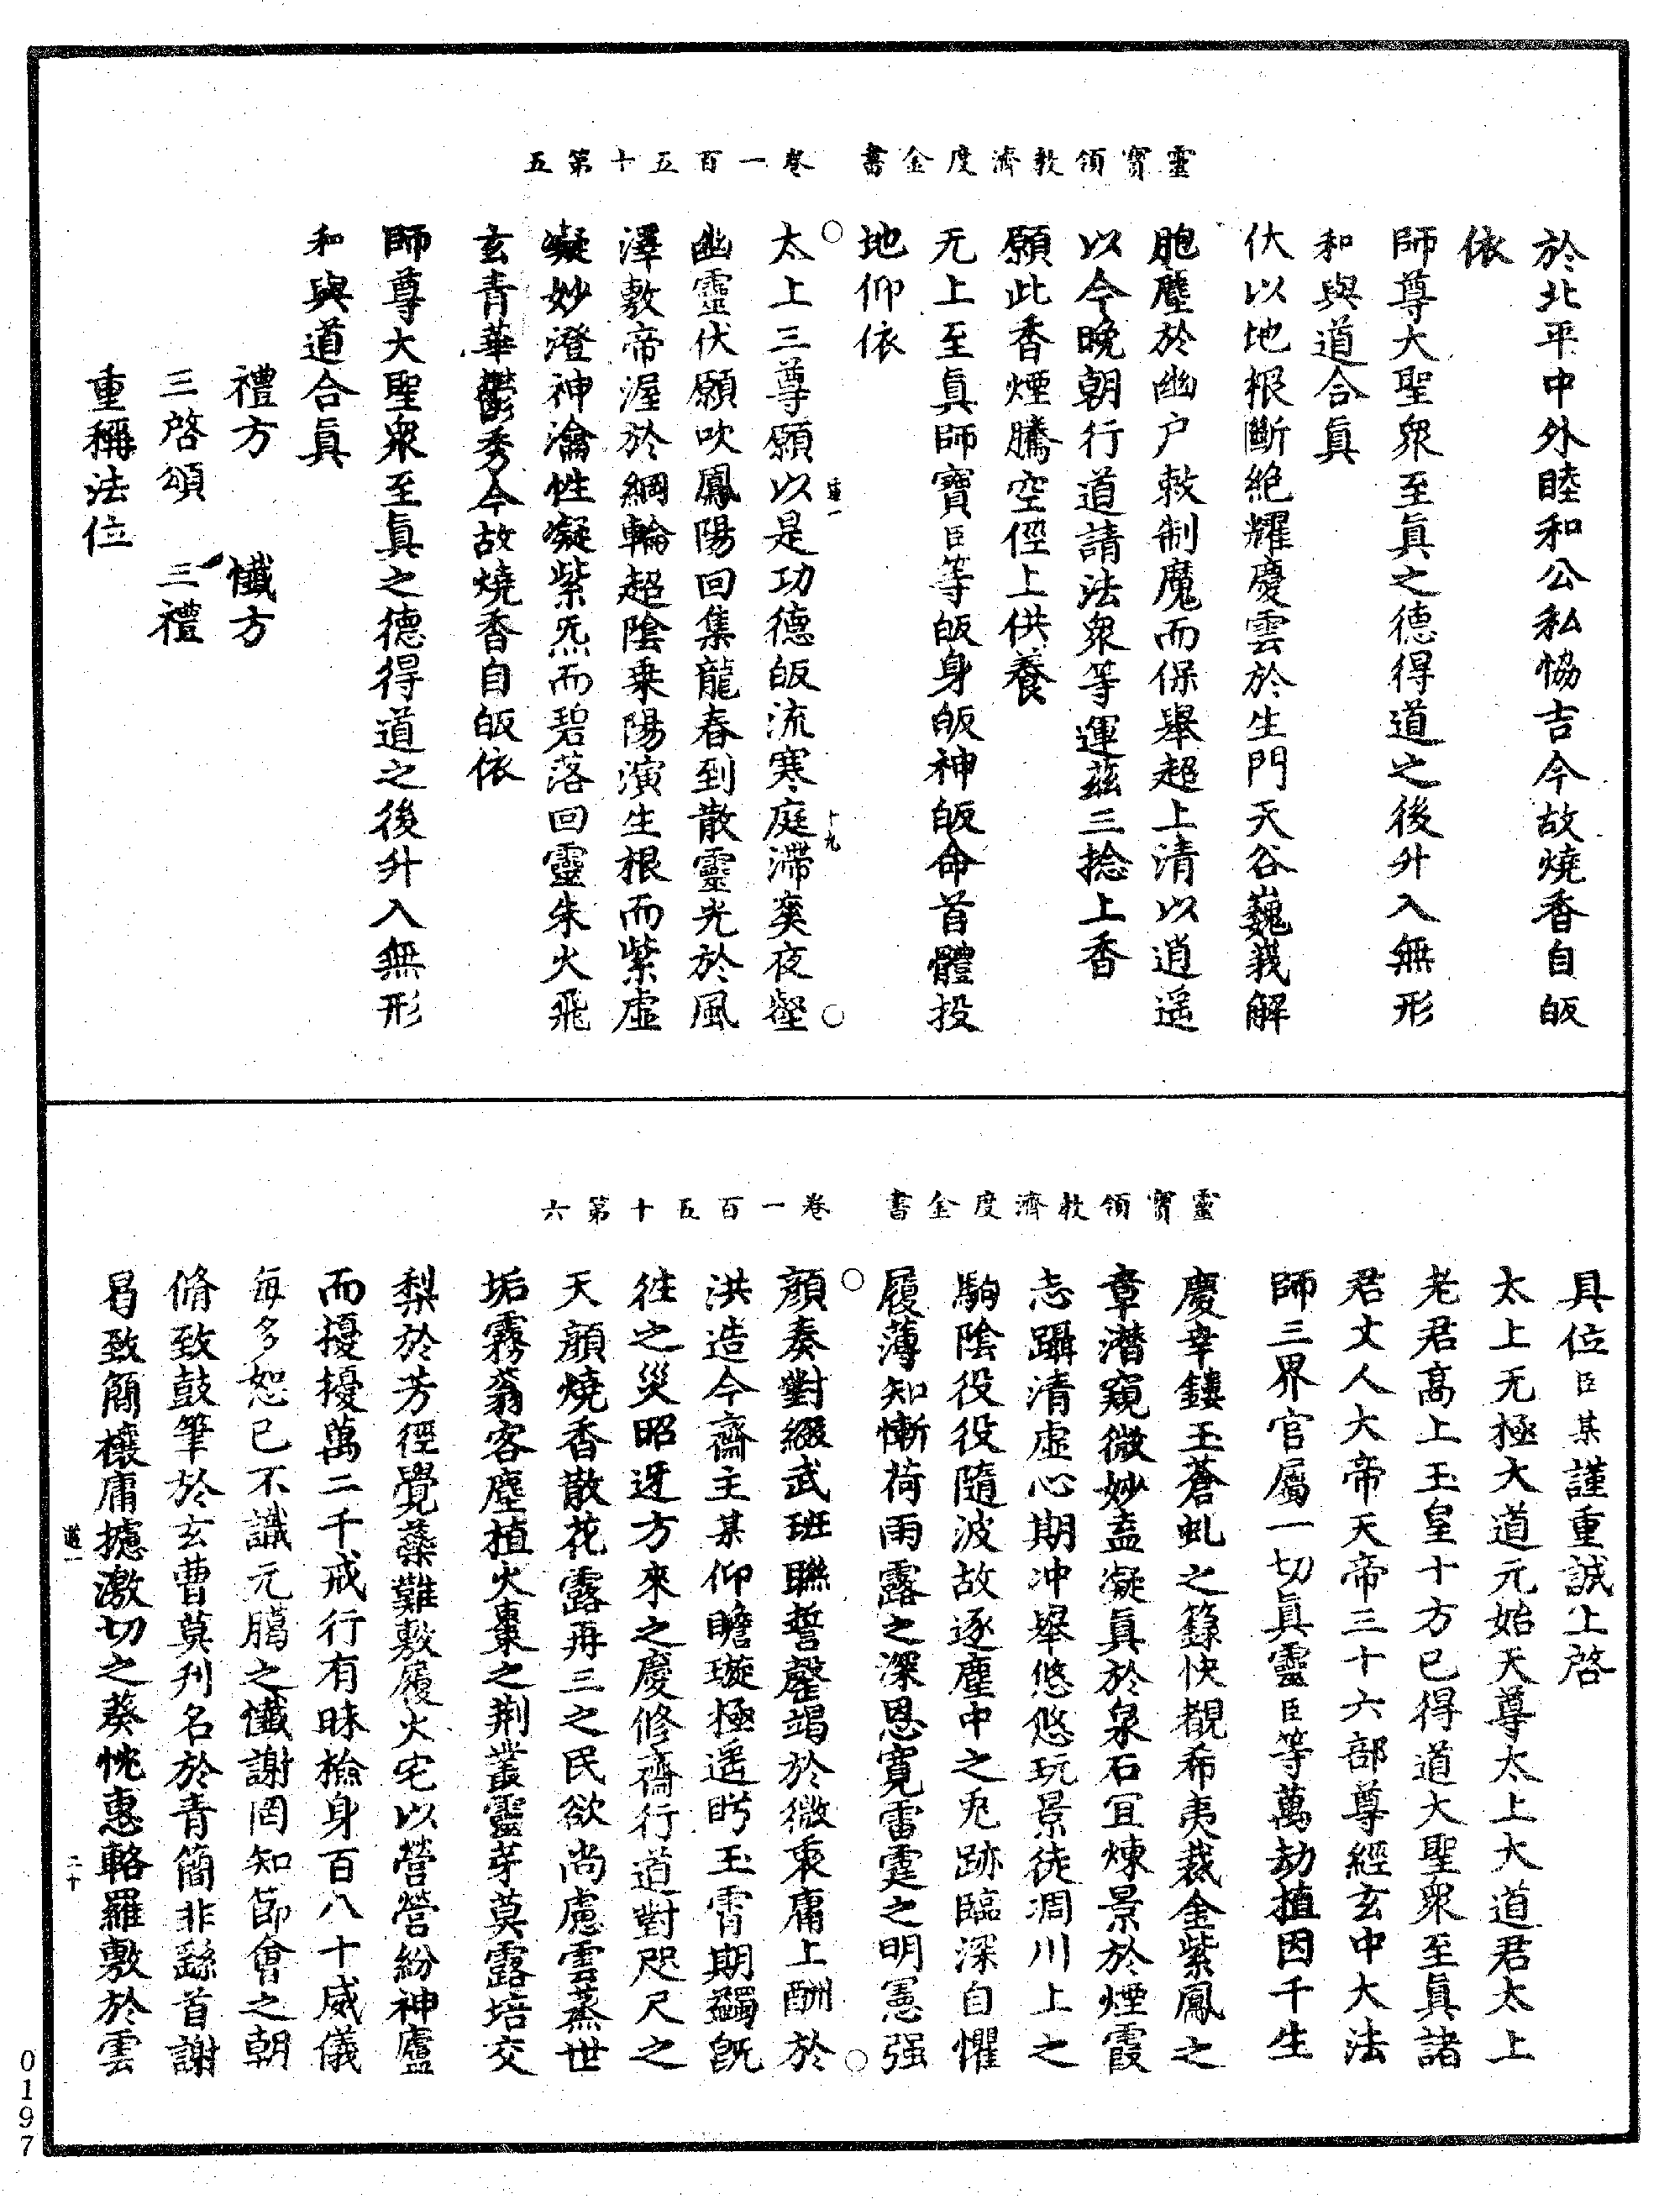 靈寶領教濟度金書　卷一百五十第五
於北平中外睦和公私恊吉今故燒香自皈
依
師尊大聖衆至眞之德得道之後升入無形
和與道合眞
伏以地根斷絶耀慶雲於生門天谷巍峩解
胞壓於幽户敕制魔而保舉超上清以逍遥
以今晚朝行道請法衆等運兹三捻上香
願此香煙騰空徑上供養
无上至眞師寶臣等皈身皈神皈命首體投
地仰依
太上三尊願以是功德皈流寒庭滯爽夜壑
道一　十九
幽靈伏願吹鳳陽回集龍春到散靈光於風
澤敷帝渥於綱輪超陰乗陽演生根而紫虛
凝妙澄神瀹性凝紫炁而碧落回靈朱火飛
玄青華鬱秀今故燒香自皈依
師尊大聖衆至眞之德得道之後升入無形
和與道合眞
禮方　懺方
三啓頌　三禮
重稱法位
靈寶領教濟度金書　卷一百五十第六
具位臣某謹重誠上啓
太上无極大道元始天尊太上大道君太上
老君高上玉皇十方已得道大聖衆至眞諸
君丈人大帝天帝三十六部尊經玄中大法
師三界官屬一切眞靈臣等萬劫植因千生
慶幸鏤玉蒼虬之籙快覩希夷裁金紫鳳之
章潜窺微妙盍凝眞於泉石冝煉景於煙霞
志躡清虚心期冲舉悠悠玩景徒凋川上之
駒陰役役隨波故逐塵中之兎跡臨深自懼
履薄知慚荷雨露之深恩寛雷霆之明憲强
顔奏對綴武班聯誓罄竭於微衷庸上酬於
洪造今齋主某仰瞻璇極遥盻玉霄期蠲旣
徃之災昭迓方來之慶修齋行道對咫尺之
天顔燒香散花露再三之民欲尚慮雲蒸世
垢霧蓊客塵植火棗之荆叢靈芽莫露培交
梨於芳徑覺蘂難敷履火宅以營營紛神廬
而擾擾萬二千戒行有昧檢身百八十威儀
每多恕己不讖元膓之懺謝罔知節會之朝
脩致鼓筆於玄曹莫刋名於青簡非繇首謝
曷致簡禳庸攄激切之葵忱惠輅羅敷於雲
道一　二十
0197